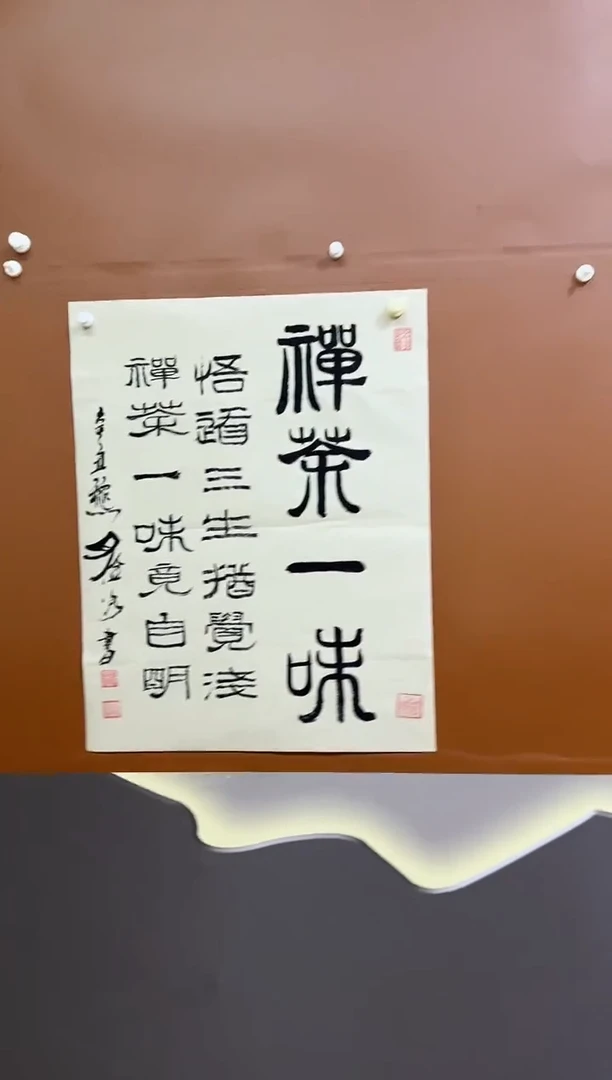 禪茶一味
悟道三生猶覺淺
禪茶一味竟自明
辛丑 書